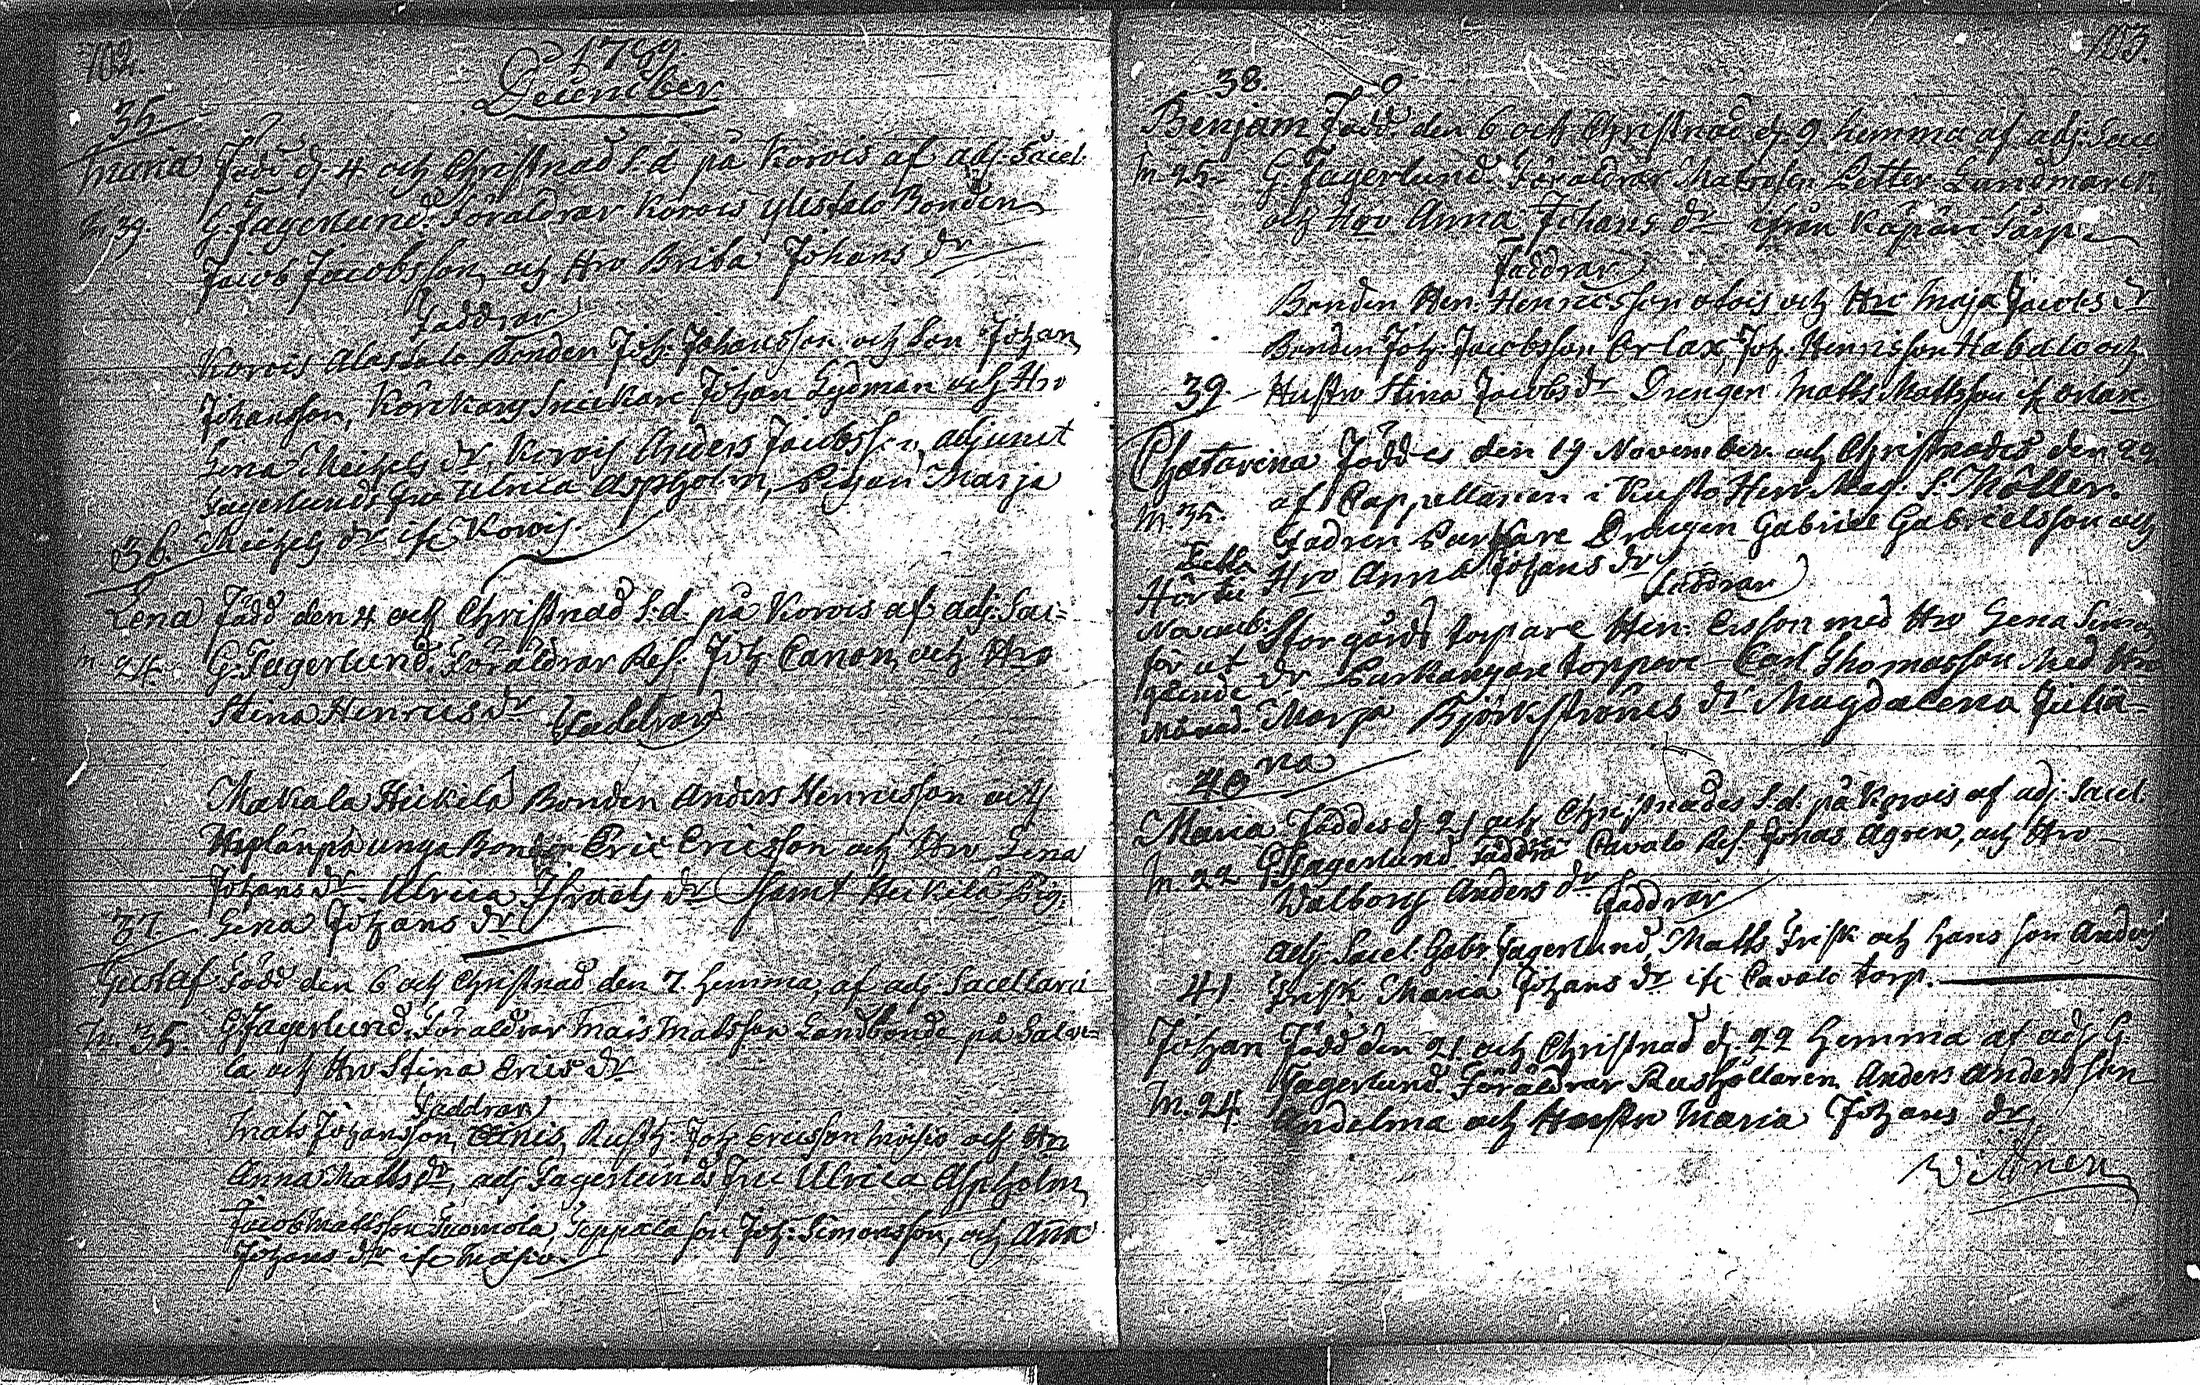 102.
1789
December
35
Maria Född d. 4 och Christnad S.d. på Korois af adj. Sacel.
M. 39 G. Fagerlund. Föräldrar Korois Ylistalo Bonden
Jacob Jacobsson och Hro Brita Johans dr
Faddrar
Korois Alastalo Bonden Joh: Johansson och Son Johan
Johansson, Snickare Johan Lydman och Hro
Lena Michels dr, Korois Anders Jacobsson, adjunct
Fagerlunds fru Ulrica Aspholm, Pigan Marja
Michels dr if Korois.
36.
Lena Född den 4 och Christnad S.d. på Korois af adj. Sac=
M. 24. G. Fagerlund. Föräldrar Ref. Joh Canon och Hro
Stina Henrics dr Faddrar
Makiala Heikilä Bonden Anders Henricsson och
unga Bonden Eric Ericsson och Hro Lena
Johans dr. Ulrica Israels dr samt Heikilä Pig.
Lena Johans dr
37.
Gustaf Född den 6 och Christnad den 7 hemma af adj. Sacellani
M. 35. G. Fagerlund. Föräldrar Mats Matsson Landbonde på
la och Hro Stina Erics dr
Faddrar
Mats Johansson, Rusth: Joh Ericsson och Hro
Anna Matts dr, adj Fagerlunds fru Ulrica Aspholm,
Jacob Mattsson Seppälä son Joh: Simonsson, och Anna
Johans dr if
103.
38.
Benjam Född den 6 och Christnad d. 9 hemma af adj. Sacel
M 25. G. Fagerlund. Föräldrar Matrosen Petter Lundmarck
och Hro Anna Johans dr ifrån
Faddrar
Bonden Hen: Henricsson och Hro Maja Jacobs dr
Bonden Joh. Jacobsson Orlax, Joh. Henrisson Habalo och
Hustro Stina Jacobs dr Drengen Matts Mattsson if Orlax
39.
Chatarina Föddes den 19 November och Christnades den 22
af Cappellanen i Kusto Herr Mag. S. Möller.
M. 35. Fadren Drengen Gabriel Gabrielsson och
Detta Hro Anna Johans dr Faddrar
Hörde
Novemb. Storgårds torpare Hen: Ersson med Hro Lena Simons
för ut dr torpare Carl Thomasson med Hro
gående
Månad. Marja Björkströms dr Magdalena Julia-
na
40
Maria Föddes d 21 och Christnades S.d. på Korois af adj. Sacel.
M. 22 G. Fagerlund. Pavalo Ref. Johas Ågren, och Hro
Walborg Anders dr Faddrar
adj Sacel. Gabr. Fagerlund, Matts Frisk och hans son Anders
41 Frisk Maria Johans dr if Pavalo torp.
Johan Född den 21 och Christnad d. 22 hemma af adj G.
M. 24. Fagerlund. Föräldrar Rushollaren Anders Andersson
Andelma och Hustro Maria Johans dr